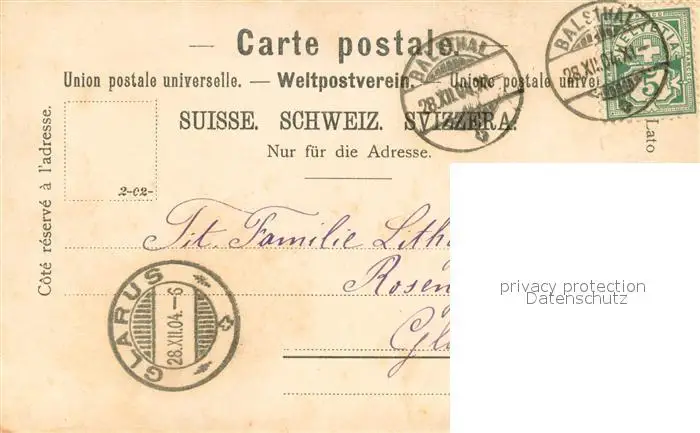 — Carte postale. —
Union postale universelle. — Weltpostverein. — Unione postale
SUISSE. SCHWEIZ. SVIZZERA.
Nur für die Adresse.
Côté réservé à l'adresse.
Lato
2-02-
BALSTHAL
28.XII.04
BALSTHAL
28.XII.04.XI-
HELVETIA
5
Tit. Familie Lith
Rosen
Gl
GLARUS
28.XII.04.–6
privacy protection
Datenschutz